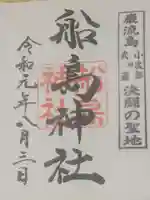 巌流島
小次郎
武蔵
決闘の聖地
船島神社
令和元年八月三日